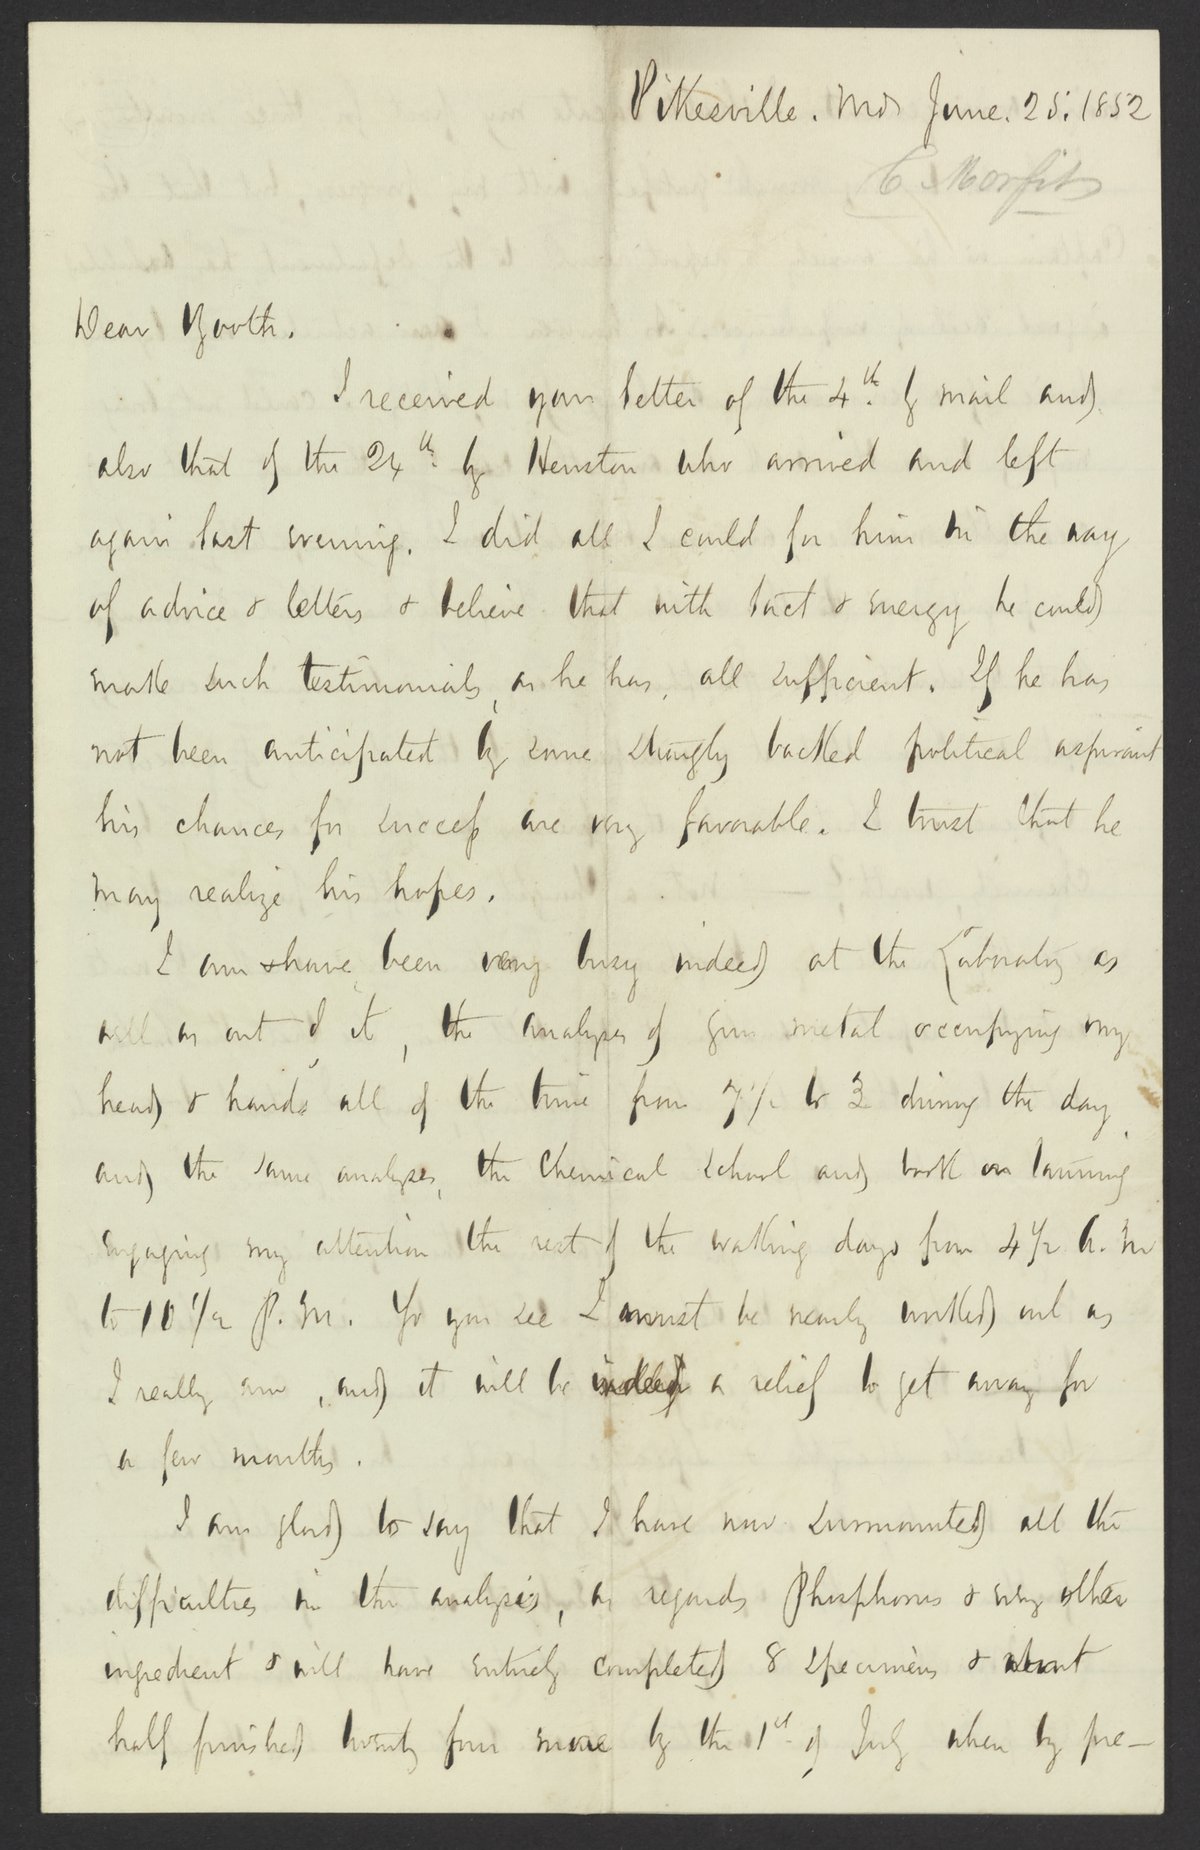 Pikesville. Md June. 25. 1852
C. Morfit
Dear Booth.
I received your letter of the 4th. by mail and
also that of the 24th. by Henston who arrived and left
again last evening. I did all I could for him in the way
of advice & letters & believe that with tact & energy he could
make such testimonials, as he has, all sufficient. If he has
not been anticipated by some strongly backed political aspirant
his chances for success are very favorable. I trust that he
may realize his hopes.
I am & have been very busy indeed at the Laboratory as
well as out of it, the analyses of gun metal occupying my
head & hands all of the time from 7 1/2 to 3 during the day
and the same analyses, the Chemical School and book on tanning
engaging my attention the rest of the walking days from 4 1/2 A. M
to 10 1/2 P. M. So you see I must be nearly worked out as
I really am, and it will be indeed a relief to get away for
a few months.
I am glad to say that I have now surmounted all the
difficulties in the analysis, as regards Phosphorus & every other
ingredient & will have entirely completed 8 specimens & about
half finished twenty four more by the 1st of July when by pre-